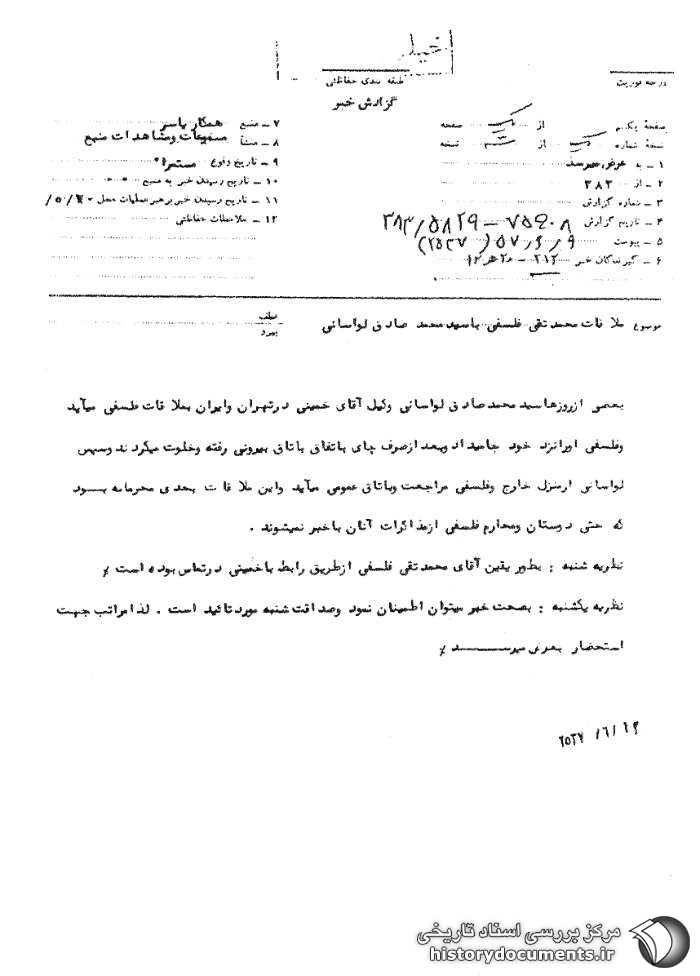 خیلی
طبقه بندی حفاظتی
درجه فوریت
گزارش خبر
صفحهٔ یکم از یک صفحه
نسخهٔ شماره یک از نسخه
۱ – به عرض میرسد
۲ – از ۳۸۳
۳ – شماره گزارش
۴ – تاریخ گزارش
۵ – پیوست
۶ – گیرندگان خبر ۳۱۲ – ۲۰ هـ ۱۲
۷ – منبع همکار یاسر
۸ – منشأ مسموعات ومشاهدات منبع
۹ – تاریخ وقوع مستمرا"
۱۰ – تاریخ رسیدن خبر به منبع
۱۱ – تاریخ رسیدن خبر برهبر عملیات محل
۱۲ – ملاحظات حفاظتی
موضوع ملاقات محمدتقی فلسفی باسیدمحمد صادق لواسانی
عطف
پیرو
بعضی ازروزهاسیدمحمدصادق لواسانی وکیل آقای خمینی درتهران وایران بملاقات فلسفی میآید
وفلسفی اورانزد خود جامیداد وبعدازصرف چای باتفاق باتاق بیرونی رفته وخلوت میکردندوسپس
لواسانی ازمنزل خارج وفلسفی مراجعت وباتاق عمومی میآید واین ملاقات بحدی محرمانه بود
که حتی دوستان ومحارم فلسفی ازمذاکرات آنان باخبر نمیشوند .
نظریه شنبه : بطور یقین آقای محمدتقی فلسفی ازطریق رابط باخمینی درتماس بوده است ٪
نظریه یکشنبه : بصحت خبر میتوان اطمینان نمود وصداقت شنبه موردتائید است . لذامراتب جهت
استحضار بعرض میرسد ٪
۲۵۳۷ /۶/۱۹
مرکز بررسی اسناد تاریخی
historydocuments.ir